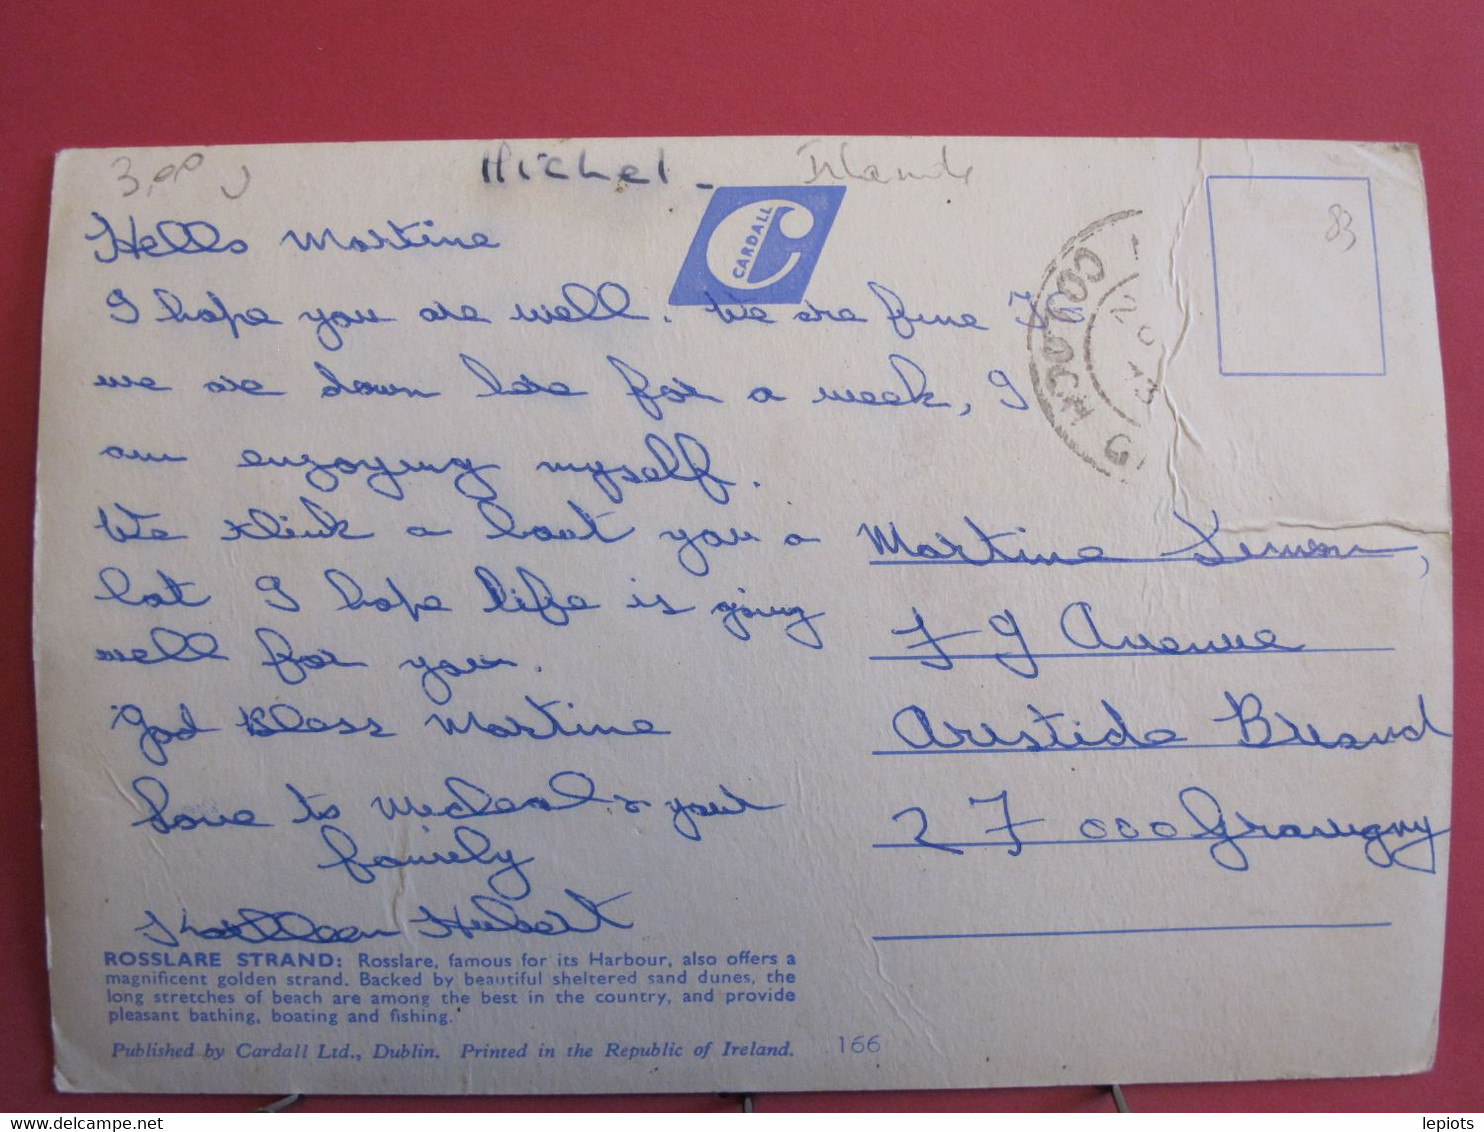 3,00
Michel - Irlande
CARDALL
83
Hello Martine
I hope you are well. We are fine
we are down here for a week, I
am enjoying myself.
We think a bout you a
lot I hope life is going
well for you.
God Bless Martine
Love to Micheal & your
family
Kathleen Hubert
Martine
79 Avenue
Aristide Briand
27 000 Gravigny
ROSSLARE STRAND: Rosslare, famous for its Harbour, also offers a
magnificent golden strand. Backed by beautiful sheltered sand dunes, the
long stretches of beach are among the best in the country, and provide
pleasant bathing, boating and fishing.
Published by Cardall Ltd., Dublin. Printed in the Republic of Ireland. 166
lepiots